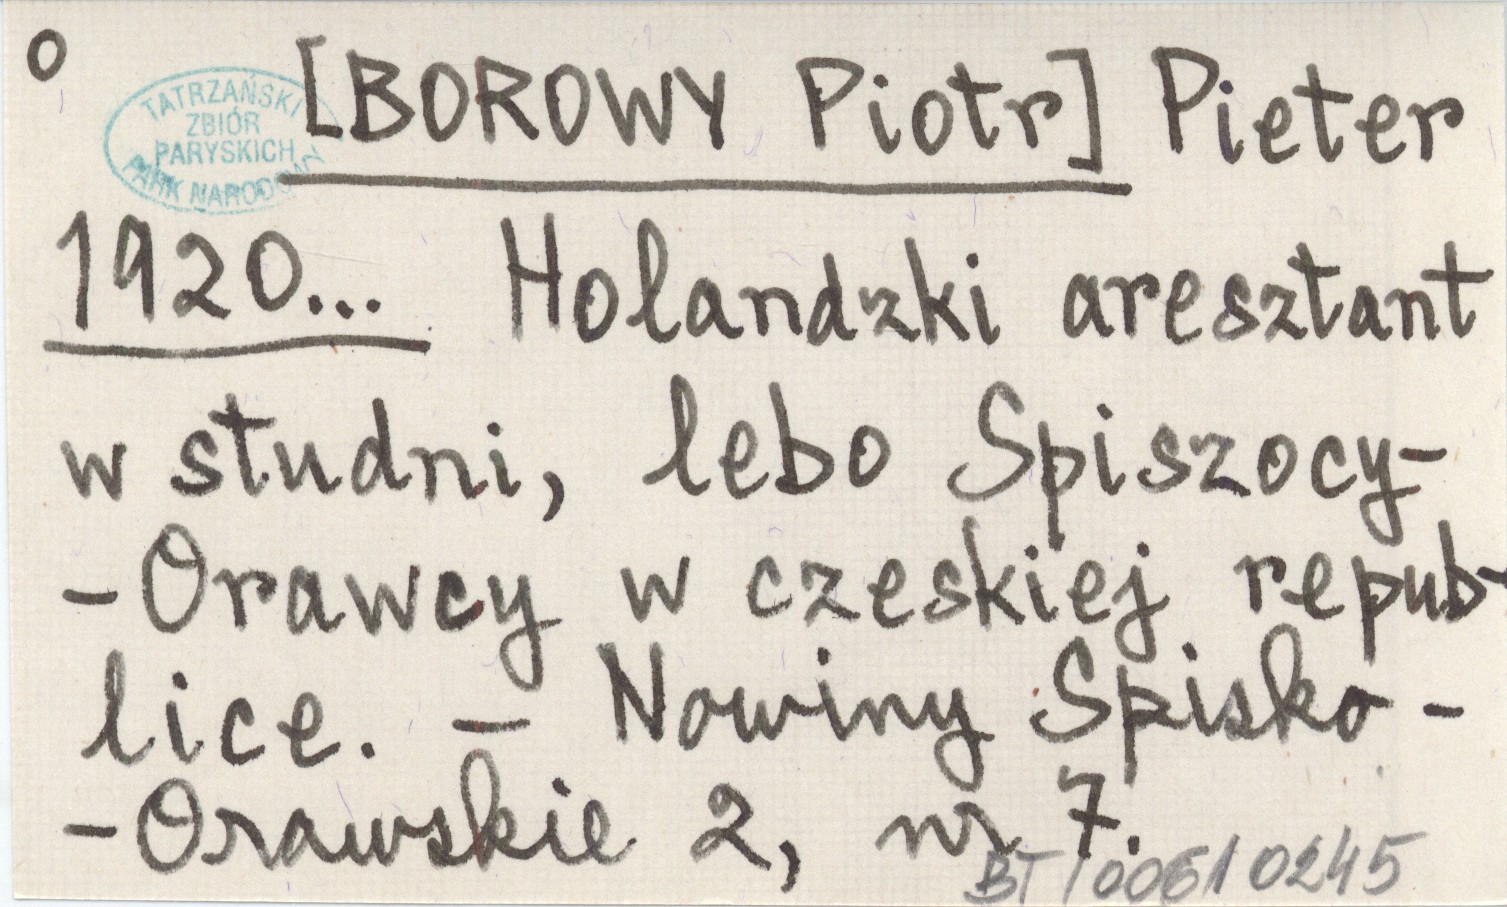 o
[BOROWY Piotr] Pieter
TATRZAŃSKI
ZBIÓR
PARYSKICH
PARK NARODOWY
1920... Holandzki aresztant
w studni, lebo Spiszocy-
-Orawcy w czeskiej repub-
lice. — Nowiny Spisko-
-Orawskie 2, nr 7.
BT/0061 0245